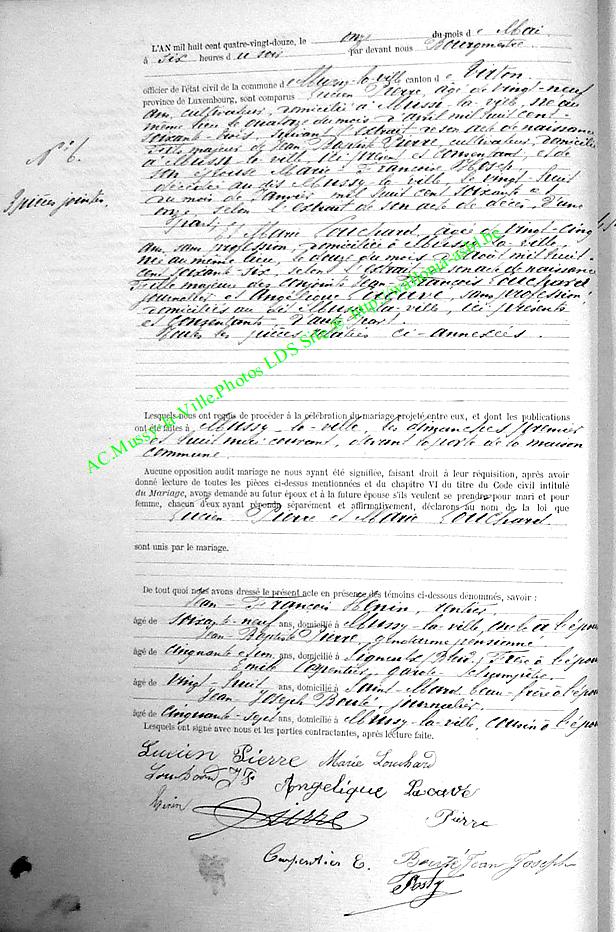 L'AN mil huit cent quatre-vingt-douze, le onze du mois d e Mai
à six heures d u soir par devant nous Bourgmestre
officier de l'état civil de la commune d e Mussy-la-ville canton d e Virton
province de Luxembourg, sont comparus Lucien Pierre, âgé de vingt-neuf
ans, cultivateur, domicilié à Mussy-la-ville, né au
même lieu, le quatorze du mois d'avril mil huit cent
soixante-trois, suivant l'extrait de son acte de naissance
N° 6.
fils majeur de Jean Baptiste Pierre, cultivateur, domicilié
à Mussy-la-ville, ici présent et consentant, et de
son épouse Marie Françoise
3 pièces jointes.
décédée au dit Mussy-la-ville, le vingt huit
du mois de Janvier mil huit cent soixante et
onze, selon l'extrait de son acte de décès, d'une
part;
Et Marie Louchard, âgée de vingt-cinq
ans, sans profession, domiciliée à Mussy-la-ville,
née au même lieu, le douze du mois d'Août mil huit
cent soixante-six, selon l'extrait de son acte de naissance
fille majeure des conjoints Jean François Louchard
journalier et Angélique Lecave, sans profession
domiciliés au dit Mussy-la-ville, ici présents
et consentants, d'autre part.
Toutes les pièces relatées ci-annexées.
AC.Mussy-la-Ville.Photos LDS Site : http://wallonia-asbl.be
Lesquels nous ont requis de procéder à la célébration du mariage projeté entre eux, et dont les publications
ont été faites à Mussy-la-ville, les dimanches premier
et huit mai courant, devant la porte de la maison
commune.
Aucune opposition audit mariage ne nous ayant été signifiée, faisant droit à leur réquisition, après avoir
donné lecture de toutes les pièces ci-dessus mentionnées et du chapitre VI du titre du Code civil intitulé
du Mariage, avons demandé au futur époux et à la future épouse s'ils veulent se prendre pour mari et pour
femme, chacun d'eux ayant répondu séparément et affirmativement, déclarons au nom de la loi que
Lucien Pierre et Marie Louchard
sont unis par le mariage.
De tout quoi nous avons dressé le présent acte en présence des témoins ci-dessous dénommés, savoir :
Jean-François Henin, rentier
âgé de soixante-neuf ans, domicilié à Mussy-la-ville, oncle à l'épou
Jean-Baptiste Pierre, gendarme pensionné
âgé de cinquante et un ans, domicilié à Signeulx Frère à l'épou
Emile Carpentier, garde
âgé de vingt-huit ans, domicilié à Saint-Mard, beau-frère à l'épou
Jean Joseph Bouté, journalier
âgé de cinquante-sept ans, domicilié à Mussy-la-ville, cousin à l'épou
Lesquels ont signé avec nous et les parties contractantes, après lecture faite.
Lucien Pierre Marie Louchard
Louchard J F Angelique Lecave
Henin Pierre Pierre
Carpentier E. Bouté Jean Joseph